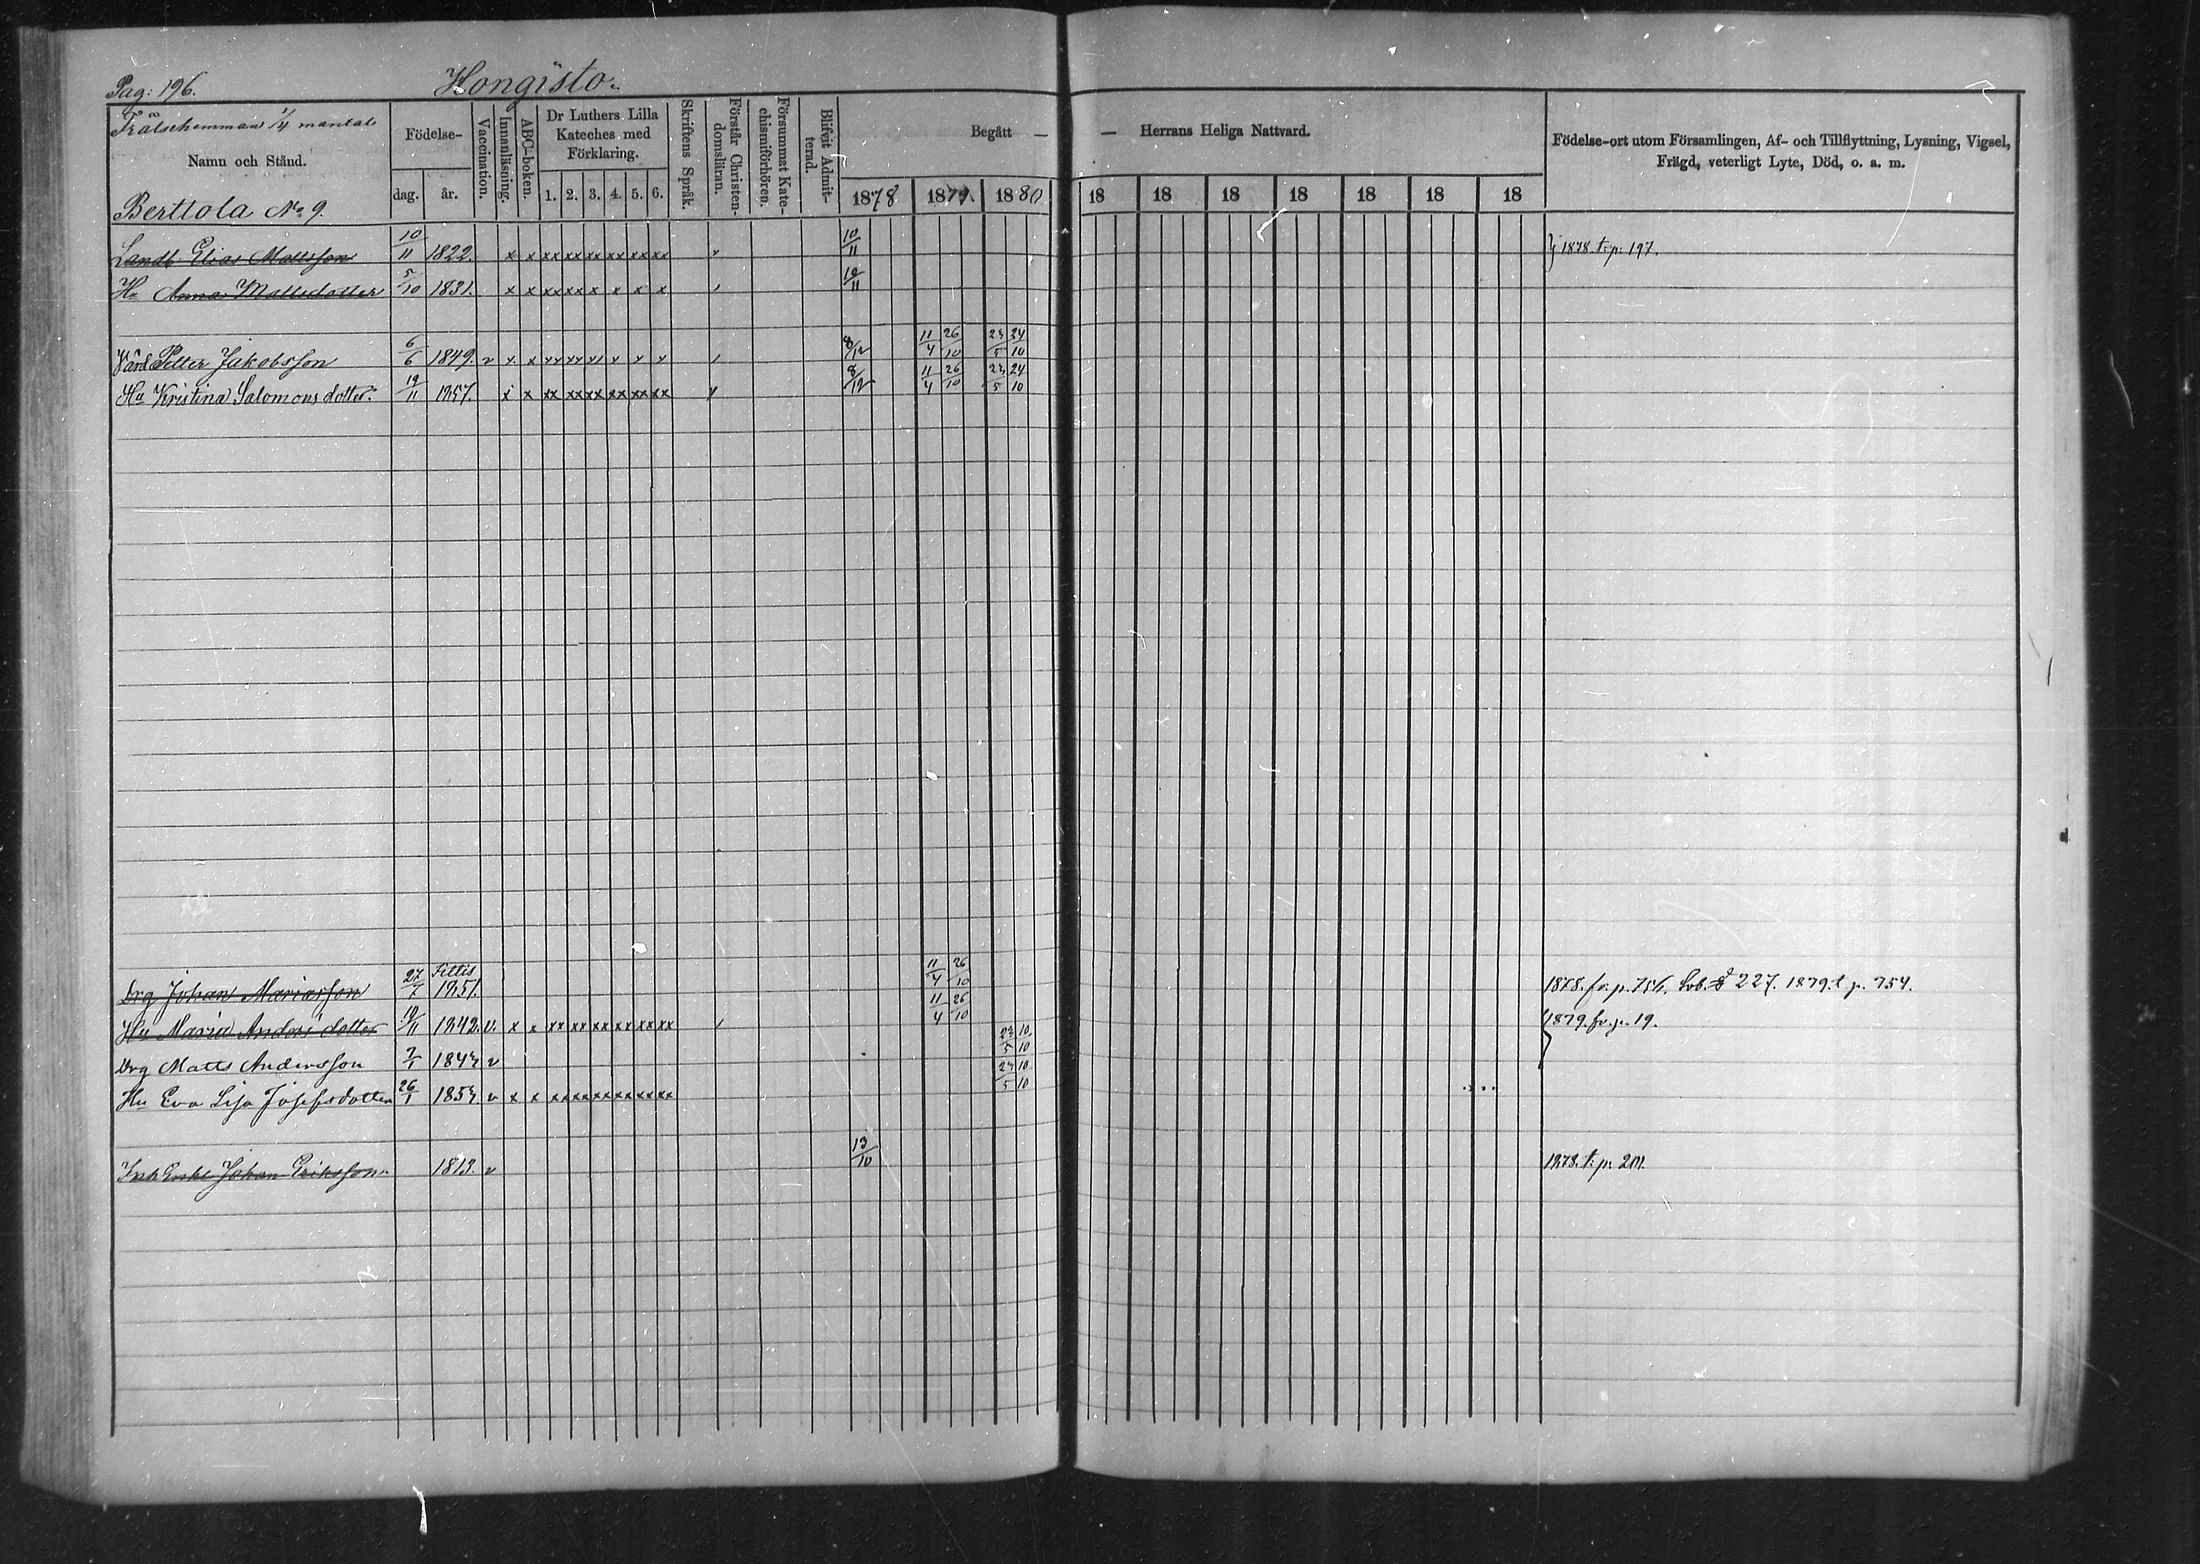 Pag: 196. Hongisto
Frälsehemman 1/4 mantal
Namn och Stånd.
Berttola No 9.
Födelse-
dag. år.
Vaccination.
Innanläsning.
ABC-boken.
Dr Luthers Lilla
Kateches med
Förklaring.
1. 2. 3. 4. 5. 6.
Skriftens Språk.
Förstår Christen-
domsläran.
Försummat Kate-
chismiförhören.
Blifvit Admit-
terad.
Begått — — Herrans Heliga Nattvard.
1878 1879. 1880 18 18 18 18 18 18 18
Födelse-ort utom Församlingen, Af- och Tillflyttning, Lysning, Vigsel,
Frägd, veterligt Lyte, Död, o. a. m.
Landb Elias Mattsson 10/11 1822. x x xx xx xx xx xx xx 10/11 } 1878. t. p. 197.
Hu Anna Mattsdotter 5/10 1831. x x xx xx x x x x 10/11
Petter Jakobsson 6/6 1849. v x x xx xx xx x x x 8/12 11/4 26/10 23/5 24/10
Hu Kristina Salomonsdotter 19/11 1857. x x xx xx xx xx xx xx 8/12 11/4 26/10 23/5 24/10
Drg Johan Mariasson 27/7 1851. 11/4 26/10 1878. fr. p. 756. 227. 1879. t. p. 754.
Hu Maria Andersdotter 19/11 1842. v. x x xx xx xx xx xx xx 11/4 26/10 1879. fr. p. 19.
Drg Matts Andersson 7/1 1843 v 23/5 10/10
Hu Eva Lisa Josefsdotter 26/1 1853 v x x xx xx xx xx xx xx 23/5 10/10
Johan Eriksson 1813. v 13/10 1878. t. p. 201.